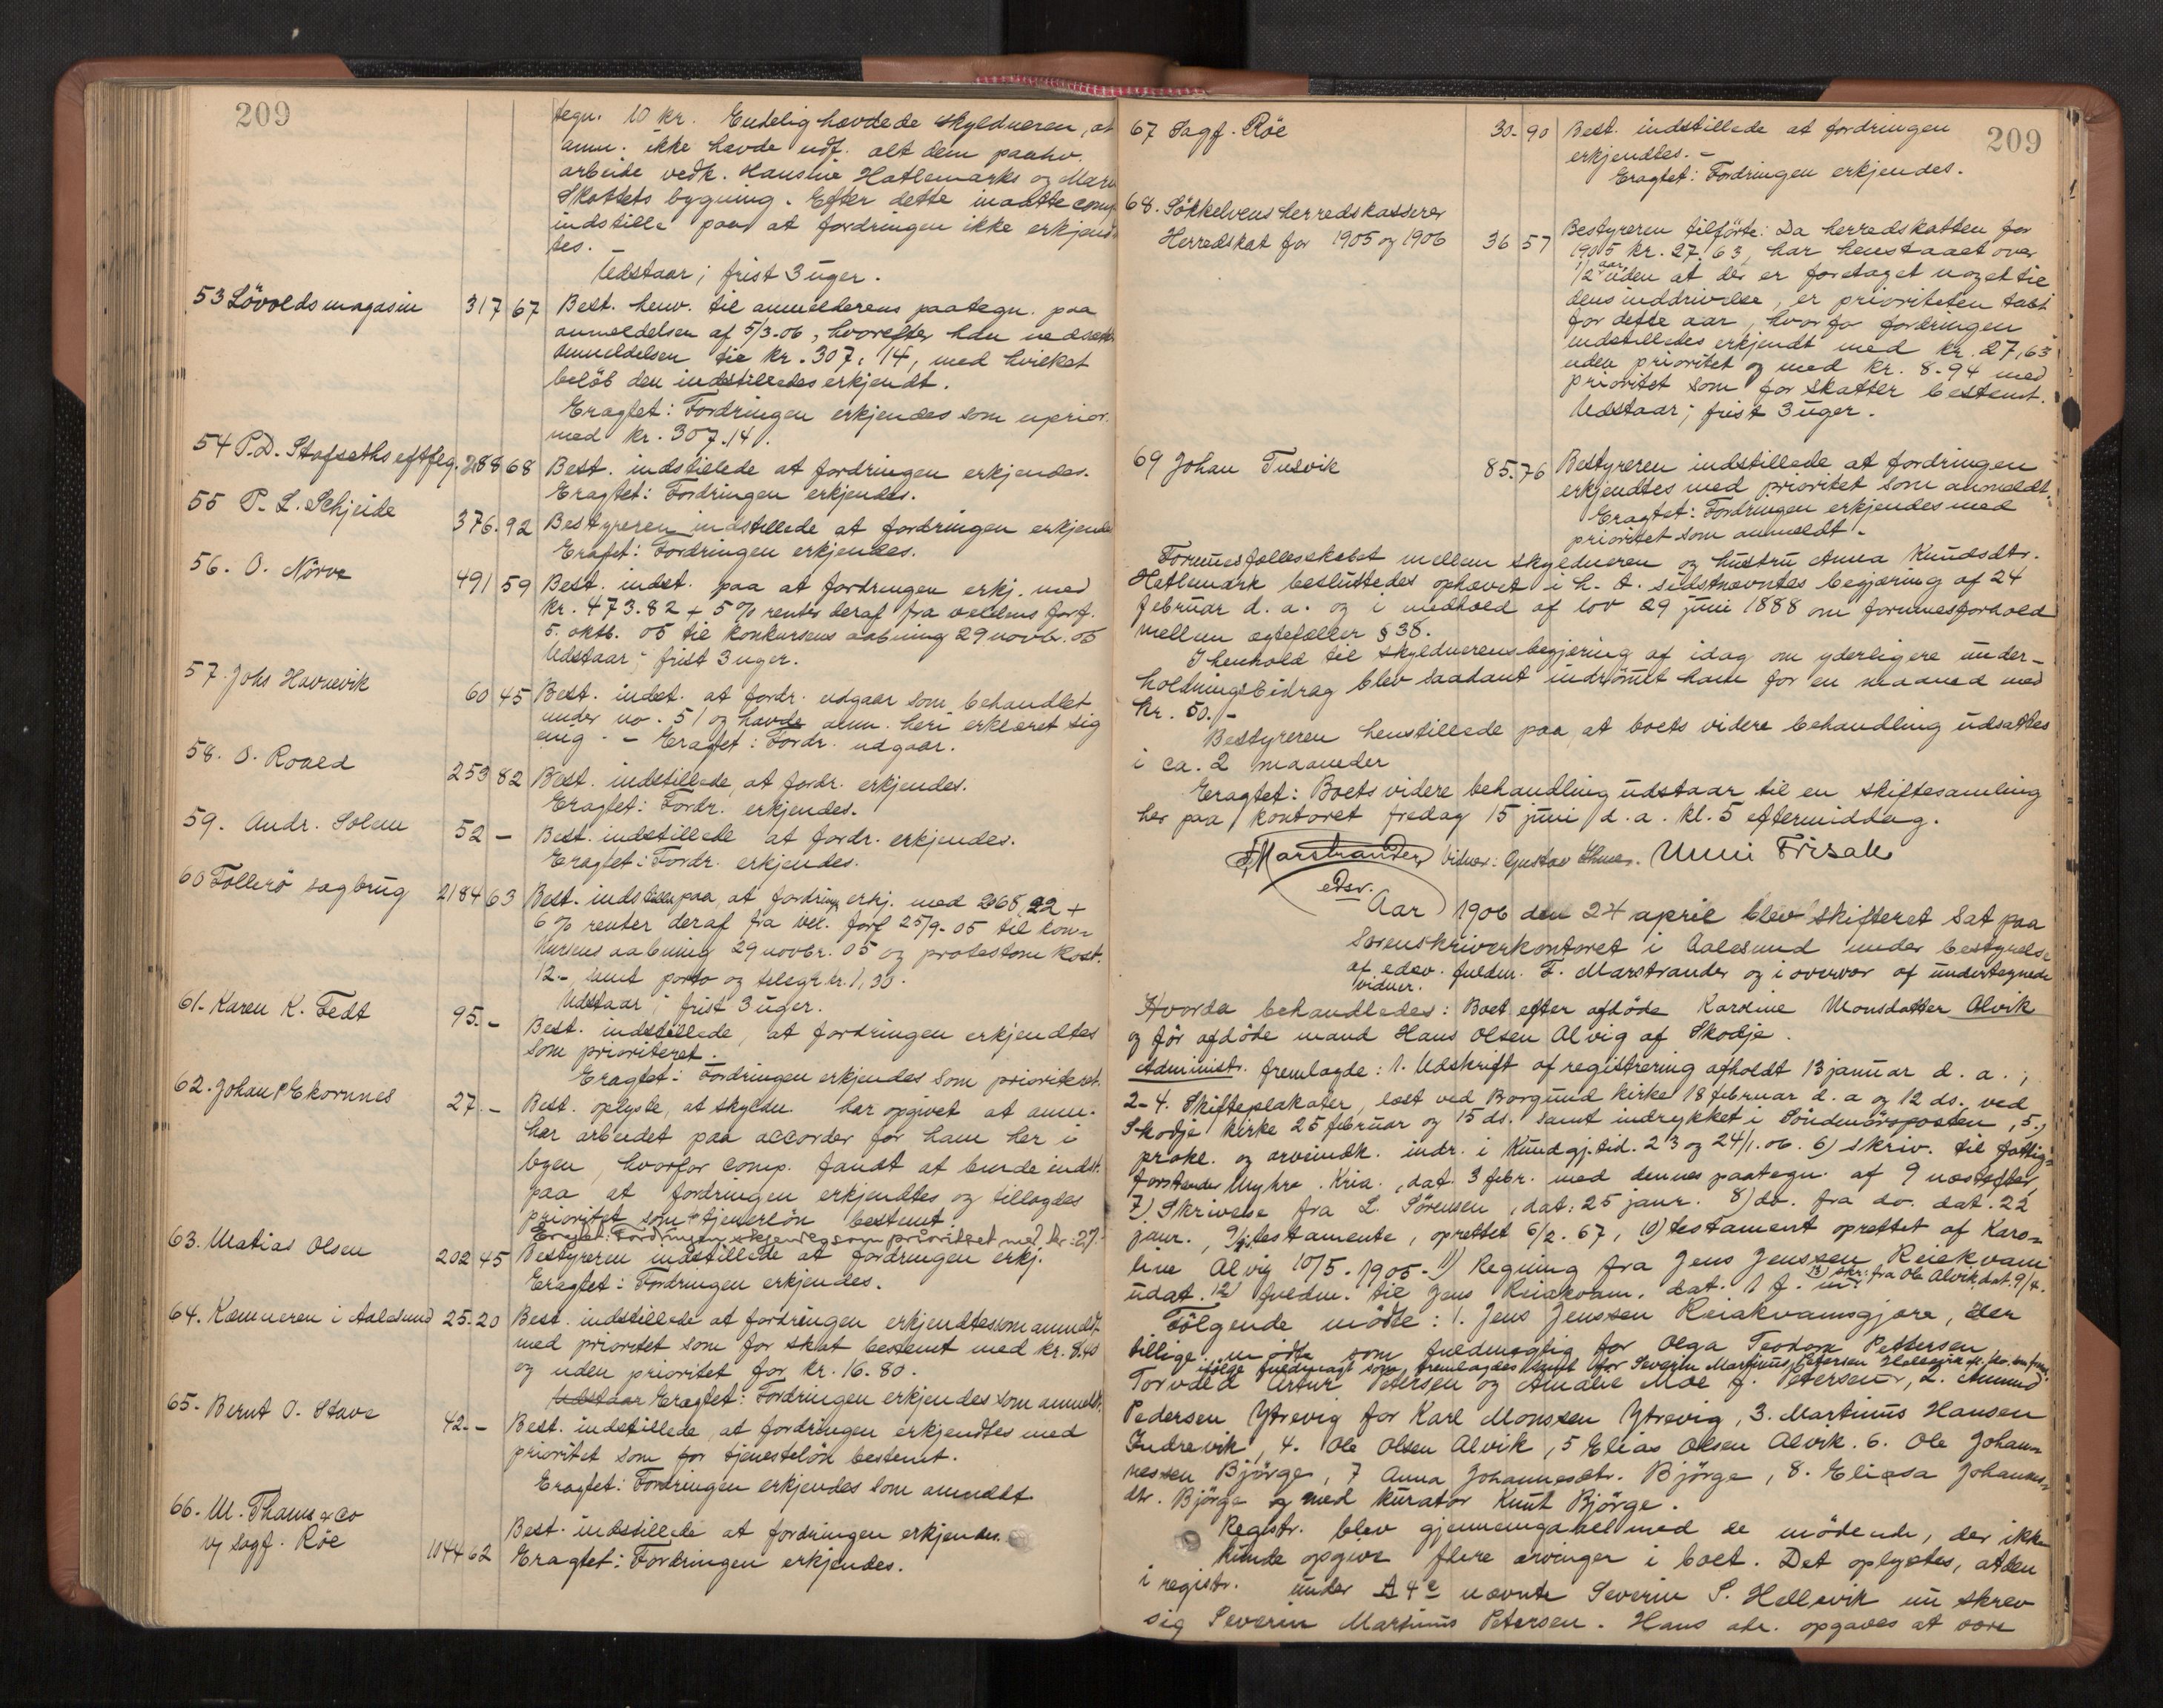 209
tegn. 10 kr. Endelig havdede skyldneren, at
anm. ikke havde udf. alt dem paahv.
arbeide vedk. Hansine Hatlemarks og
Skottets bygning. Efter dette maatte comp.
indstille paa at fordringen ikke erkjend-
tes.
Udstaar; frist 3 uger.
53 Lövolds magasin 317 67 Best. henv. til anmelderens paategn. paa
anmeldelsen af 5/3-06, hvorefter han nedsætt.
anmeldelsen til kr. 307,14, med hvilket
belöb den indstilledes erkjendt.
Eragtet: Fordringen erkjendes som uprior.
med kr. 307.14.
54 P.D. Stafseths eftflg. 288 68 Best. indstillede at fordringen erkjendes.
Eragtet: Fordringen erkjendes.
55 P. L. Schjeide 376.92 Bestyreren indstillede at fordringen erkjendes
Eragtet: Fordringen erkjendes.
56. O. Nörve 491 59 Best. indst. paa at fordringen erkj. med
kr. 473.82 + 5 % renter deraf fra vexlens forf.
5. oktb. 05 til konkursens aabning 29 novbr. 05
Udstaar; frist 3 uger.
57. Johs Havnevik 60 45 Best. indst. at fordr. udgaar som behandlet
under no. 51 og havde anm. heri erklæret sig
enig. - Eragtet: Fordr. udgaar.
58. O. Roald 253 82 Best. indstillede, at fordr. erkjendes.
Eragtet: Fordr. erkjendes.
59. Andr. Solem 52 - Best. indstillede at fordr. erkjendes.
Eragtet: Fordr. erkjendes.
60 Tollerö sagbrug 2184 63 Best. indstiller paa, at fordringen erkj. med 2068,22 +
6 % renter deraf fra vex. forf. 25/9-05 til kon-
kursens aabning 29 novbr. 05 og protestomkost.
12.- samt porto og telegr. kr. 1,30.
Udstaar; frist 3 uger.
61. Karen K. Fedt 95.- Best. indstillede, at fordringen erkjendtes
som prioriteret.
Eragtet: Fordringen erkjendes som prioriteret.
62. Johan P Ekornnes 27.- Best. oplyste, at skyldn. har opgivet at anm.
har arbeidet paa accorder for ham her i
byen, hvorfor comp. fandt at burde indst.
paa at fordringen erkjendtes og tillagdes
prioritet som tjenerlön bestemt.
Eragtet: Fordringen erkjendes som prioritset med kr. 27.-
63. Matias Olsen 202 45 Bestyreren indstillede at fordringen erkj.
Eragtet: Fordringen erkjendes.
64. Kæmneren i Aalesund 25.20 Best. indstillede at fordringen erkjendtes som anmeldt
med prioritet som for skat bestemt med kr. 8.40
og uden prioritet for kr. 16.80.
Udstaar Eragtet: Fordringen erkjendes som anmeldt.
65. Bernt O. Stave 42.- Best. indstillede, at fordringen erkjendtes med
prioritet som for tjenestelön bestemt.
Eragtet: Fordringen erkjendes som anmeldt
66. M. Thams & Co
v/ sagf. Röe 1044 62 Best. indstillede at fordringen erkjendes.
Eragtet: Fordringen erkjendes.
209
67 Sagf. Röe 30.90 Best. indstillede at fordringen
erkjendtes. -
Eragtet: Fordringen erkjendes.
68. Sökkelvens herredskasserer
Herredskat for 1905 og 1906 36 57 Bestyreren tilförte: Da herredskatten for
1905 kr. 27,63, har henstaaet over
1/2 aar uden at der er foretaget noget til
dens inddrivelse, er prioriteten tabt
for dette aar, hvorfor fordringen
indstilledes erkjendt med kr. 27,63
uden prioritet og med kr. 8.94 med
prioritet som for skatter bestemt.
Udstaar; frist 3 uger.
69 Johan Tusvik 85.76 Bestyreren indstillede at fordringen
erkjendtes med prioritet som anmeldt.
Eragtet: Fordringen erkjendes med
prioritet som anmeldt.
Formuesfællesskabet mellem skyldneren og hustru Anna Knudsdtr.
Hatlemark besluttedes ophævet i h. t. sidstnævntes begjæring af 24
februar d. a. og i medhold af lov 29 juni 1888 om formuesforhold
mellem ægtefæller § 38.
I henhold til skyldnerens begjæring af idag om yderligere under-
holdningsbidrag blev saadant indrömmet ham for en maaned med
kr. 50.-
Bestyreren henstillede paa at boets videre behandling udsattes
i ca. 2 maaneder
Eragtet: Boets videre behandling udstaar til en skiftesamling
her paa kontoret fredag 15 juni d. a. kl. 5 eftermiddag.
F Marstrander Vidner: Gustav Unni Frisak
edsv.
Aar 1906 den 24 april blev skifteret sat paa
Sorenskriverkontoret i Aalesund under bestyrelse
af edsv. fuldm. F. Marstrander og i overvær af undertegnede
vidner.
Hvorda behandledes: Boet efter afdöde Karoline Monsdatter Alvik
og för afdöde mand Hans Olsen Alvig af Skodje.
Administr. fremlagde: 1. Udskrift af registrering afholdt 13 januar d. a.;
2-4. Skifteplakater, læst ved Borgund kirke 18 februar d. a og 12 ds. ved
Skodje kirke 25 februar og 15 ds. samt indrykket i Söndmörsposten, 5.)
prokl. og arveindk. indr. i Kundgj.tid. 23 og 24/1.06. 6) skriv. til fattig-
forstander Myhre Kria., dat. 3 febr. med dennes paategn. af 9 næstefter,
7) Skrivelse fra L. Sörensen, dat: 25 janr. 8) do. fra do. dat. 22
janr., 9) testamente, oprettet 6/2.67, 10) testament oprettet af Karo-
line Alvig 10/5.1905. 11) Regning fra Jens Jenssen Reiakvam
udat. 12) fuldm. til Jens Reiakvam, dat. 1 f. m. 13) skr. fra Ole Alvik dat. 9/4.
Fölgende mödte: 1. Jens Jenssen Reiakvamsgjære, der
tillige mödte som fuldmægtig for Olga Teodora Pettersen,
ifölge fuldmagt som fremlagdes samt for Severin Martinus Petersen Hellevik
Torvald Artur Petersen og Amalie Moe f. Petersen, 2. Amund
Pedersen Ytrevig for Karl Monssen Ytrevig, 3. Martinus Hansen
Indrevik, 4. Ole Olsen Alvik, 5 Elias Olsen Alvik. 6. Ole Johan-
nessen Björge, 7 Anna Johannesdtr. Björge, 8. Eliasa Johannes-
dtr. Björge og med kurator Knut Björge.
Registr. blev gjennemgaaet med de mödende, der ikke
kunde opgive flere arvinger i boet. Det oplystes, at den
i registr. under A 4 e nævnte Severin S. Hellevik nu skrev
sig Severin Martinus Petersen. Hans adr. opgaves at være